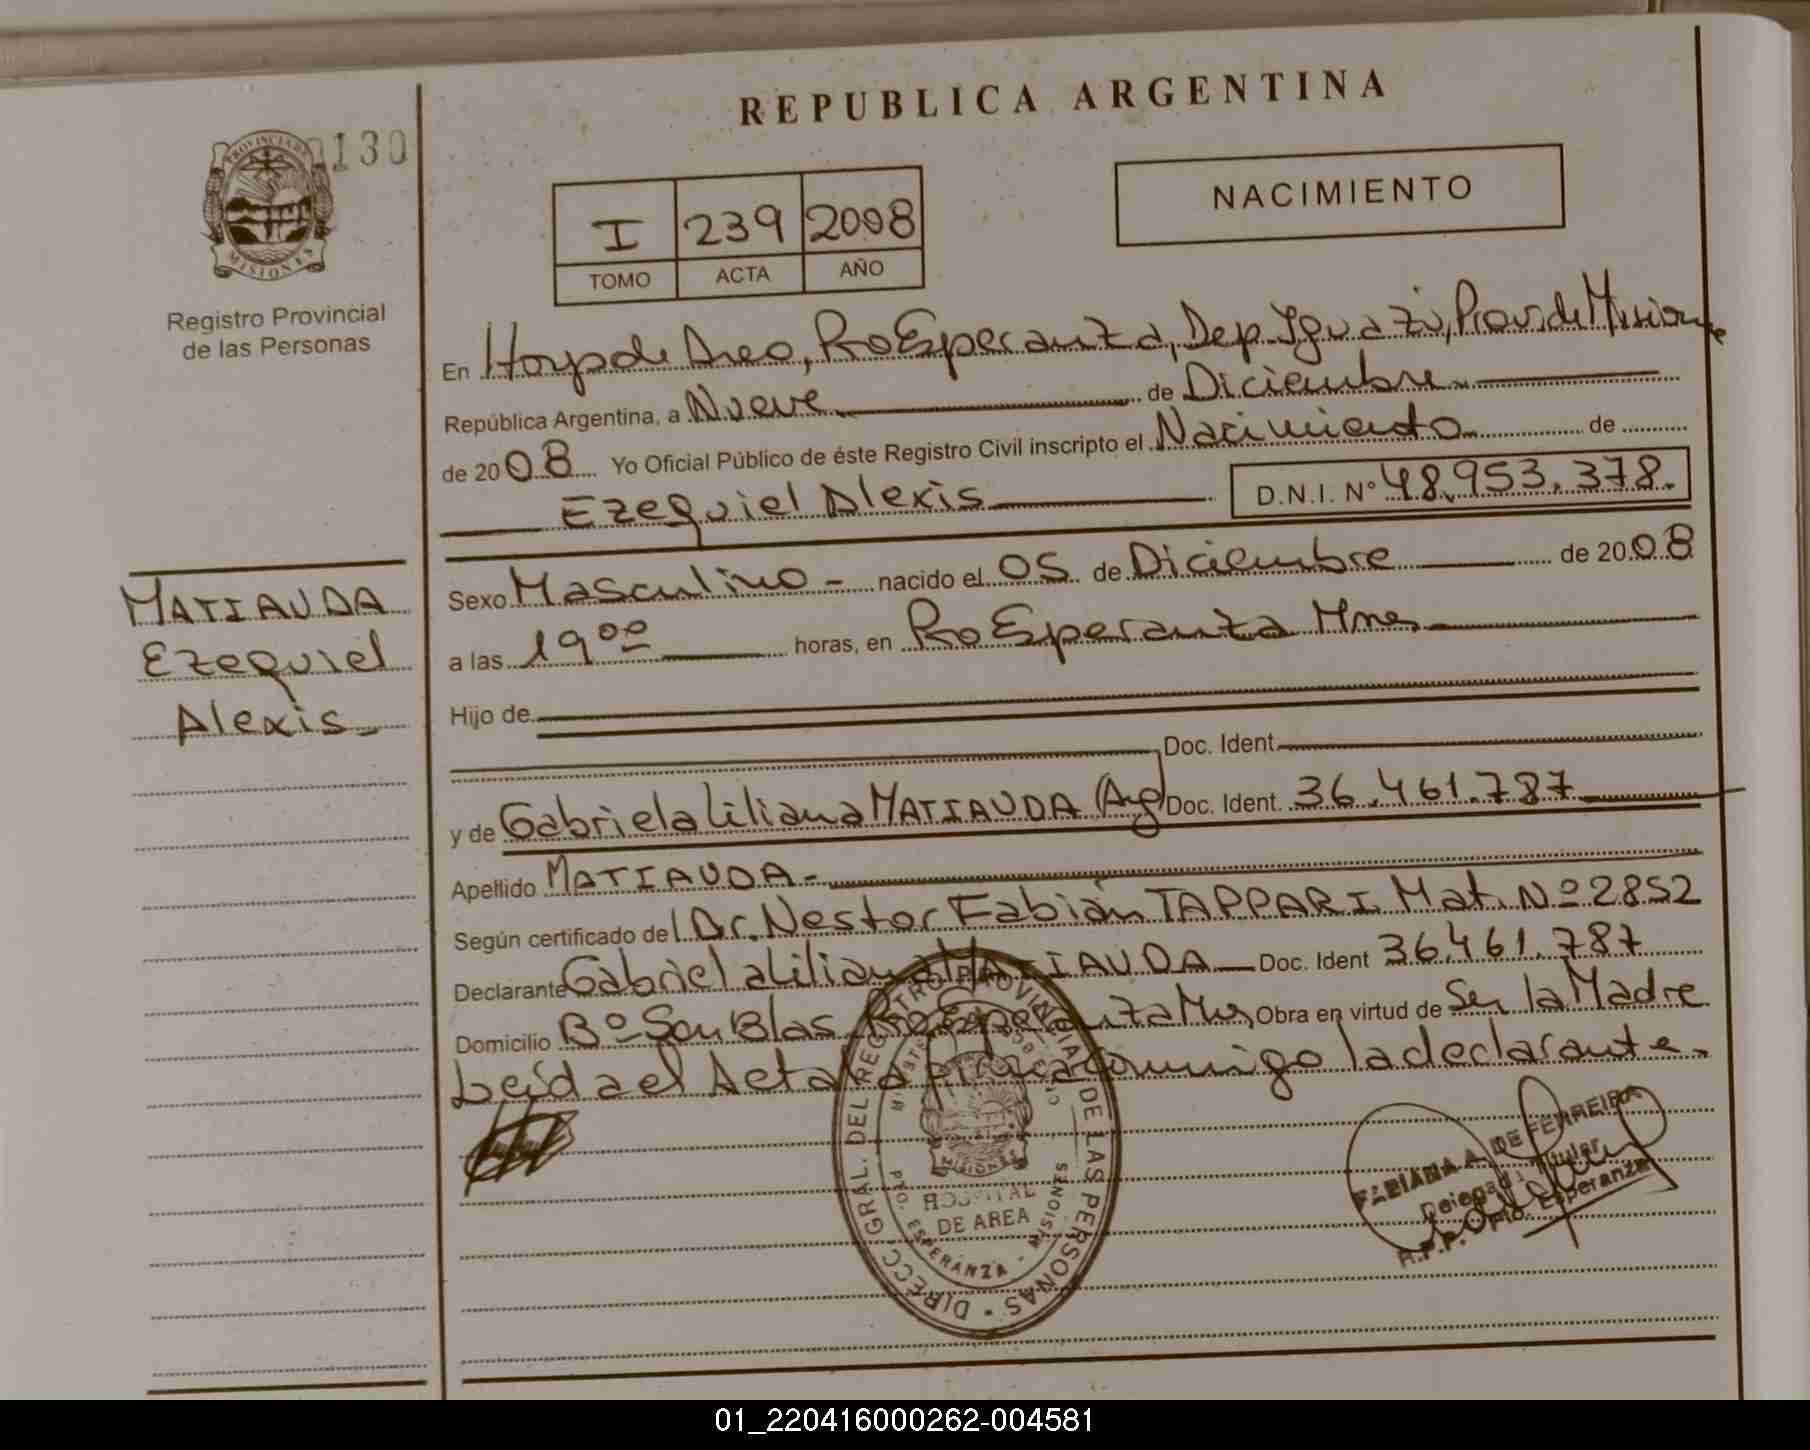 REPUBLICA ARGENTINA
130
PROVINCIA DE
MISIONES
Registro Provincial
de las Personas
I 239 2008
TOMO ACTA AÑO
NACIMIENTO
En Hosp de Area, Pto Esperanza, Dep. Iguazú, Prov. de Misiones
República Argentina, a Nueve de Diciembre
de 2008 Yo Oficial Público de éste Registro Civil inscripto el Nacimiento de
Ezequiel Alexis D.N.I. N° 48.953.378.
MATIAUDA
Ezequiel
Alexis
Sexo Masculino - nacido el 05 de Diciembre de 2008
a las 19 00 horas, en Pto Esperanza Mnes
Hijo de
Doc. Ident.
y de Gabriela Liliana MATIAUDA (Arg) Doc. Ident. 36.461.787
Apellido MATIAUDA-
Según certificado del Dr. Nestor Fabián TAPPARI Mat. Nº 2852
Declarante Gabriela Liliana MATIAUDA Doc. Ident 36.461.787
Domicilio Bº San Blas Pto Esperanza Mnes Obra en virtud de Ser la Madre
Leída el Acta la firma conmigo la declarante.
DIRECC. GRAL. DEL REGISTRO PROVINCIAL DE LAS PERSONAS
MISIONES
HOSPITAL
DE AREA
PTO. ESPERANZA - MISIONES
FABIANA A. DE FERREIRA
Delegada Titular
R.P.P. Pto. Esperanza
01_220416000262-004581